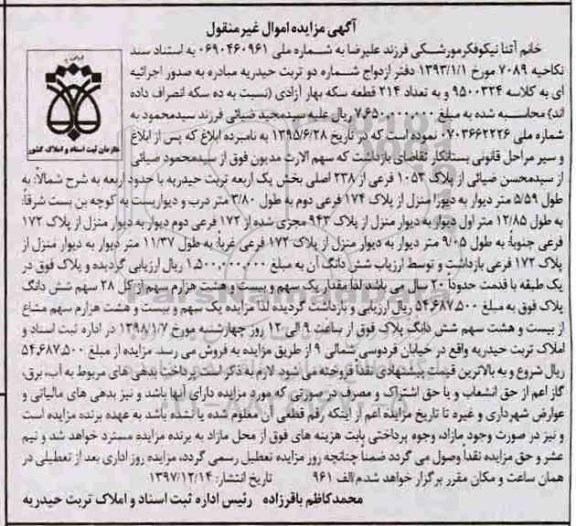 آگهی مزایده اموال غیرمنقول
خانم آتنا نیکوفکر مورشکی فرزند علیرضا به شماره ملی ۰۶۹۰۴۶۰۹۶۱ به استناد سند
نکاحیه ۷۰۸۹ مورخ ۱۳۹۳/۱/۱ دفتر ازدواج شماره دو تربت حیدریه مبادره به صدور اجرائیه
ای به کلاسه ۹۵۰۰۳۲۴ و به تعداد ۲۱۴ قطعه سکه بهار آزادی (نسبت به ده سکه انصراف داده
اند) محاسبه شده به مبلغ ریال علیه سیدمجید ضیائی فرزند سیدمحمود به
شماره ملی ۰۷۰۳۶۶۲۲۲۶ نموده است که در تاریخ ۱۳۹۵/۶/۲۸ به نامبرده ابلاغ که پس از ابلاغ
و سیر مراحل قانونی بستانکار تقاضای بازداشت که سهم الارث مدیون فوق از سیدمحمود ضیائی
از سیدمحسن ضیائی از پلاک ۱۰۵۳ فرعی از ۲۳۸ اصلی بخش یک اربعه تربت حیدریه با حدود اربعه به شرح شمالاً: به
طول ۵/۵۹ متر دیوار به دیوار منزل از پلاک ۱۷۴ فرعی دوم به طول ۳/۸۰ متر درب و دیواریست به کوچه بن بست شرقاً:
به طول ۱۲/۸۵ متر اول دیوار به دیوار منزل از پلاک ۹۴۳ مجزی شده از ۱۷۲ فرعی دوم دیوار به دیوار منزل از پلاک ۱۷۲
فرعی جنوباً: به طول ۹/۰۵ متر دیوار به دیوار منزل از پلاک ۱۷۲ فرعی غرباً: به طول ۱۱/۳۷ متر دیوار به دیوار منزل از
پلاک ۱۷۲ فرعی بازداشت و توسط ارزیاب شش دانگ آن به مبلغ ریال ارزیابی گردیده و پلاک فوق در
یک طبقه با قدمت حدوداً ۲۰ سال می باشد لذا مقدار یک سهم و بیست و هشت هزارم سهم از کل ۲۸ سهم شش دانگ
پلاک فوق به مبلغ ۵۴,۶۸۷,۵۰۰ ریال ارزیابی و بازداشت گردیده لذا مزایده یک سهم و بیست و هشت هزارم سهم مشاع
از بیست و هشت سهم شش دانگ پلاک فوق از ساعت ۹ الی ۱۲ روز چهارشنبه مورخ ۱۳۹۸/۱/۷ در اداره ثبت اسناد و
املاک تربت حیدریه واقع در خیابان فردوسی شمالی ۹ از طریق مزایده به فروش می رسد. مزایده از مبلغ ۵۴,۶۸۷,۵۰۰
ریال شروع و به بالاترین قیمت پیشنهادی نقداً فروخته می شود. لازم به ذکر است پرداخت بدهی های مربوط به آب، برق،
گاز اعم از حق انشعاب و یا حق اشتراک و مصرف در صورتی که مورد مزایده دارای آنها باشد و نیز بدهی های مالیاتی و
عوارض شهرداری و غیره تا تاریخ مزایده اعم از اینکه رقم قطعی آن معلوم شده یا نشده باشد به عهده برنده مزایده است
و نیز در صورت وجود مازاد، وجوه پرداختی بابت هزینه های فوق از محل مازاد به برنده مزایده مسترد خواهد شد و نیم
عشر و حق مزایده نقداً وصول می گردد ضمناً چنانچه روز مزایده تعطیل رسمی گردد، مزایده روز اداری بعد از تعطیلی در
همان ساعت و مکان مقرر برگزار خواهد شد.م/الف ۹۶۱ تاریخ انتشار: ۱۳۹۷/۱۲/۱۴
محمدکاظم باقرزاده رئیس اداره ثبت اسناد و املاک تربت حیدریه
سازمان ثبت اسناد و املاک کشور